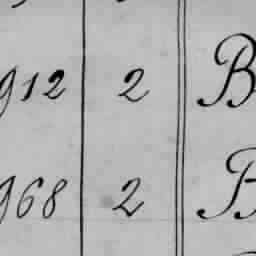 912 2 B
968 2 B